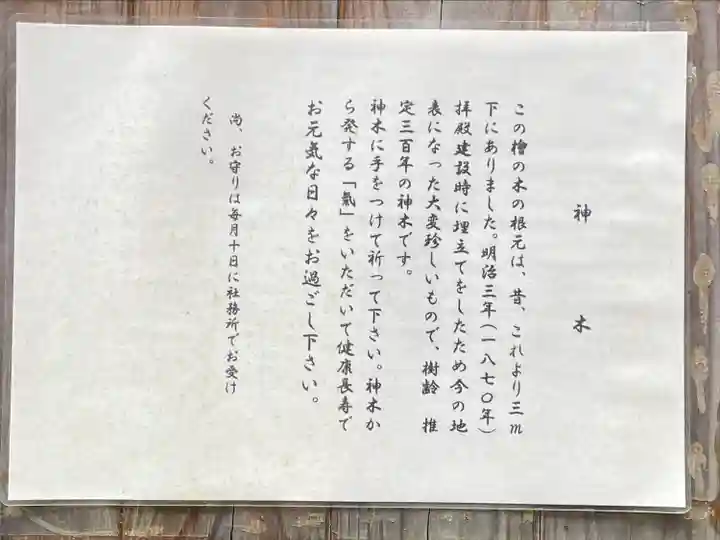 神木
この檜の木の根元は、昔、これより三m
下にありました。明治三年(一八七〇年)
拝殿建設時に埋立てをしたため今の地
表になった大変珍しいもので、樹齢 推
定三百年の神木です。
神木に手をつけて祈って下さい。神木か
ら発する「氣」をいただいて健康長寿で
お元気な日々をお過ごし下さい。
尚、お守りは毎月十日に社務所でお受け
ください。